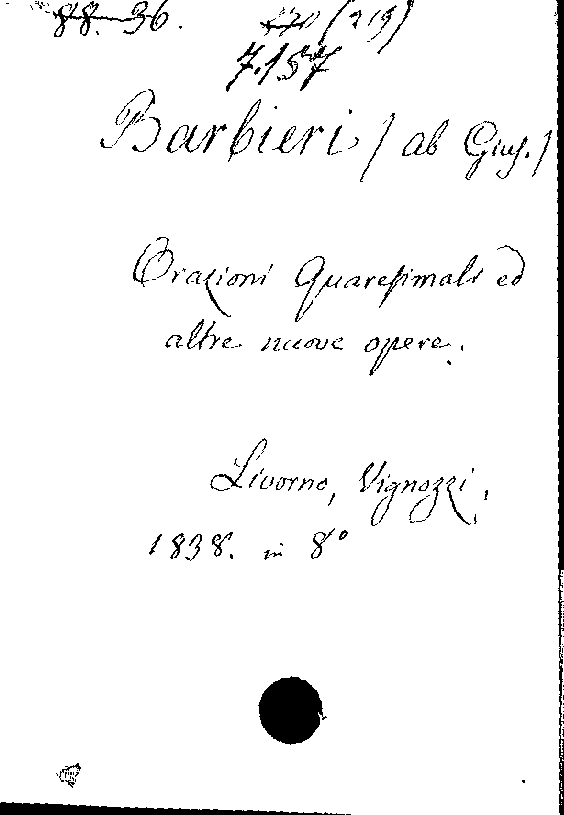 88. 36. 270 (219)
7.157
Barbieri / ab Gius. /
Orazioni Quaresimali ed
altre nuove opere.
Livorno, Vignozzi,
1838. in 8°